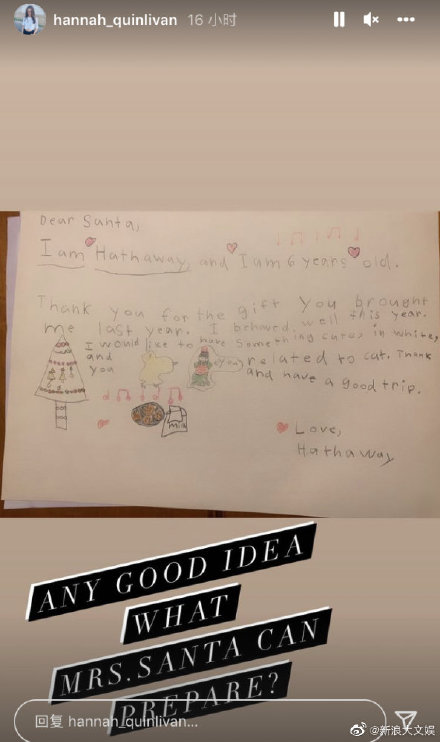 hannah_quinlivan 16 小时
Dear Santa,
I am Hathaway, and I am 6 years old.
Thank you for the gift you brought
me last year. I behaved well this year.
I would like to have something cute, in white,
and related to cat. Thank
you and have a good trip.
Milk
Love,
Hathaway
ANY GOOD IDEA
WHAT
MRS.SANTA CAN
PREPARE?
回复 hannah_quinlivan...
@新浪大文娱